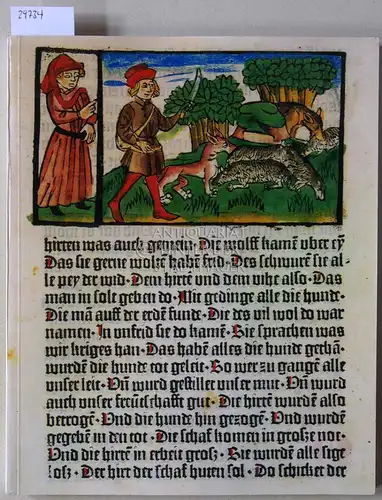 24734
ANTIQUARIAT
hirten was auch gemein · Die wolff kamē vber eȳ
Das sie gerne wolten habē frid · Des schwurē sie al-
le pey der wid · Dem hirten und dem vihe also · Das
man in solt geben do · Mit gedinge alle die hunde ·
Die mā auff der erdē funde · Die des vil wol do war
namen · In unfrid sie do kamē · Sie sprachen was
wir kriges han · Das habē alles die hunde getbā ·
wurdē die hunde tot geleit · So wer zu gangē alle
unser leit · Uñ wurd gestillet unser mut · Uñ wurd
auch unser freūtschafft gut · Die hirtē wurdē also
betrogē · Und die hunde hin gezogē · Und wurdē
gegebē in den tot · Die schaf komen in grosze not ·
Und die hirtē in erbeit grosz · Sie wurdē alle sige
losz · Der hirt der schaf huten sol · Do schicket der